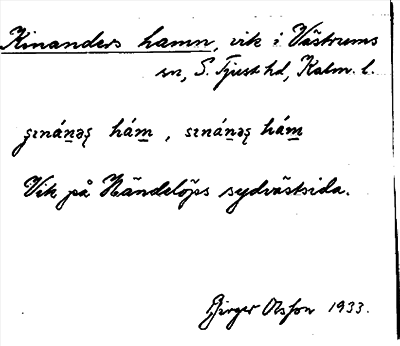 Kinanders hamn, vik i Västrums
sn, S. Tjust hd, Kalm. l.
ʂɪnánəʂ hám, sɪnánəʂ hám
Vik på Händelöps sydvästsida.
Birger Olsson 1933.